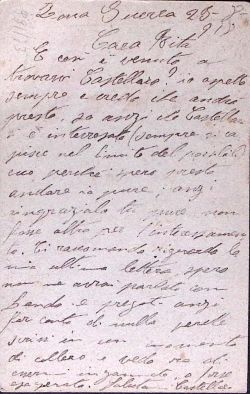 Zona Guerra 25-
Cara Bita
E con è venuto a
trovarvi Castellaro? io aspetto
sempre e credo che andrò
presto, se anzi che Castellaro
si è interessato (sempre si ca
pisce nel limite del possibile
spero presto
andare io pure; anzi
ringrazialo tu pure non
fosse altro per l'interessamento
Ti raccomando riguardo la
mia ultima lettera spero
non ne avrai parlato con
e pregoti anzi
far conto di nulla perchè
scrissi in un momento
di collera e vedo ora di
essermi ingannato o forse
esagerato. Saluta Castellaro